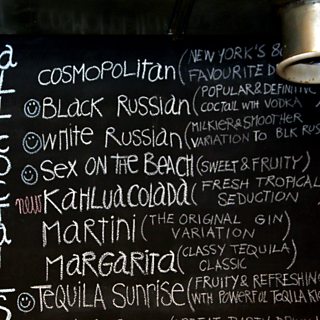 ALL COCKTAILS
COSMOPOLITAN (NEW YORK'S
FAVOURITE
BLACK RUSSIAN (POPULAR & DEFINITIVE
COCTAIL WITH VODKA
WHITE RUSSIAN (MILKIER & SMOOTHER
VARIATION TO BLK RUS
SEX ON THE BEACH (SWEET & FRUITY)
new KAHLUACOLADA (FRESH TROPICAL
SEDUCTION
MARTINI (THE ORIGINAL GIN
VARIATION)
MARGARITA (CLASSY TEQUILA
CLASSIC)
TEQUILA SUNRISE (FRUITY & REFRESHING
WTH POWERFUL TEQUILA KIC